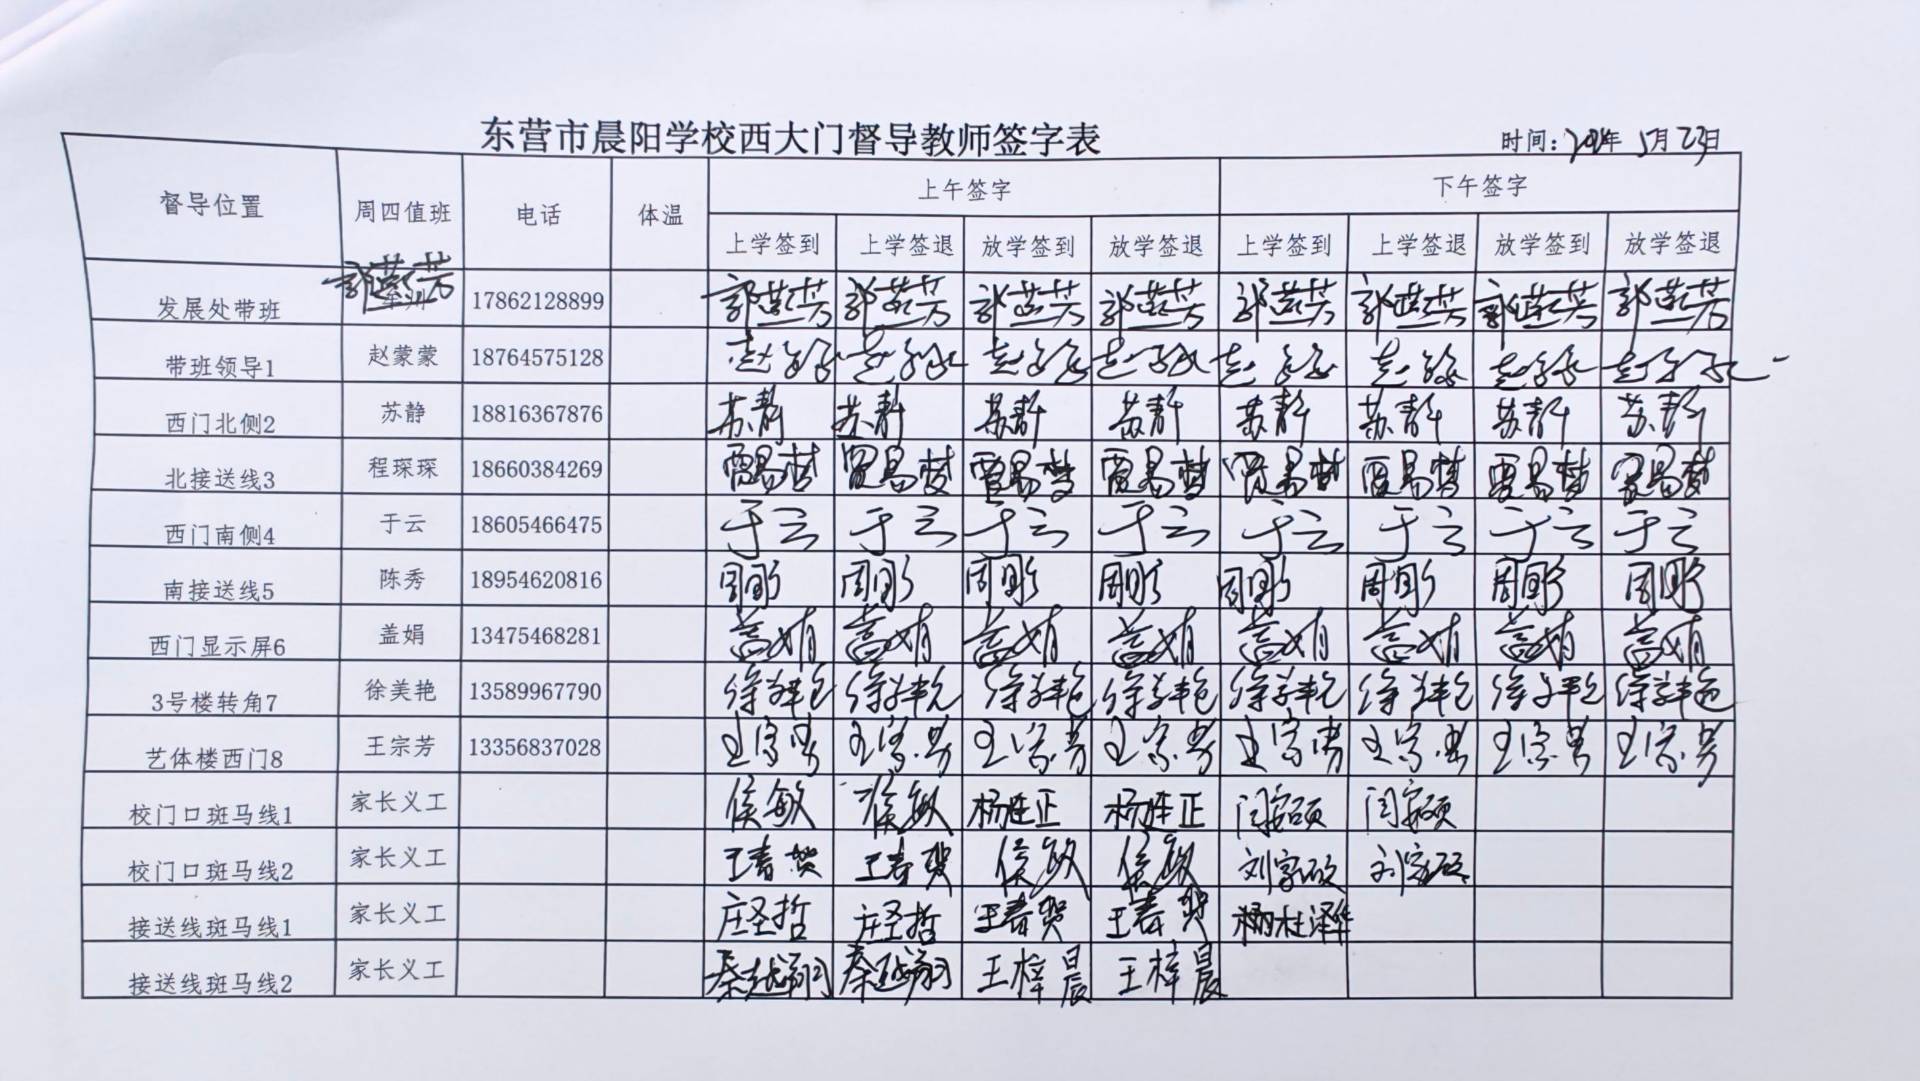 东营市晨阳学校西大门督导教师签字表
时间：2024年 5月23日
督导位置 周四值班 电话 体温 上午签字 下午签字
上学签到 上学签退 放学签到 放学签退 上学签到 上学签退 放学签到 放学签退
郭燕芳
发展处带班 17862128899 郭燕芳 郭燕芳 郭燕芳 郭燕芳 郭燕芳 郭燕芳 郭燕芳 郭燕芳
带班领导1 赵蒙蒙 18764575128 赵蒙蒙 赵蒙蒙 赵蒙蒙 赵蒙蒙 赵蒙蒙 赵蒙蒙 赵蒙蒙 赵蒙蒙
西门北侧2 苏静 18816367876 苏静 苏静 苏静 苏静 苏静 苏静 苏静 苏静
北接送线3 程琛琛 18660384269 贾易梦 贾易梦 贾易梦 贾易梦 贾易梦 贾易梦 贾易梦 贾易梦
西门南侧4 于云 18605466475 于云 于云 于云 于云 于云 于云 于云 于云
南接送线5 陈秀 18954620816 周彤 周彤 周彤 周彤 周彤 周彤 周彤 周彤
西门显示屏6 盖娟 13475468281 盖娟 盖娟 盖娟 盖娟 盖娟 盖娟 盖娟 盖娟
3号楼转角7 徐美艳 13589967790 徐美艳 徐美艳 徐美艳 徐美艳 徐美艳 徐美艳 徐美艳 徐美艳
艺体楼西门8 王宗芳 13356837028 王宗芳 王宗芳 王宗芳 王宗芳 王宗芳 王宗芳 王宗芳 王宗芳
校门口斑马线1 家长义工 侯敏 侯敏 杨胜正 杨胜正
校门口斑马线2 家长义工 王春贺 王春贺 侯敏 侯敏 刘家硕 刘家硕
接送线斑马线1 家长义工 庄圣哲 庄圣哲 王春贺 王春贺 杨杜泽华
接送线斑马线2 家长义工 秦越翔 秦越翔 王梓晨 王梓晨